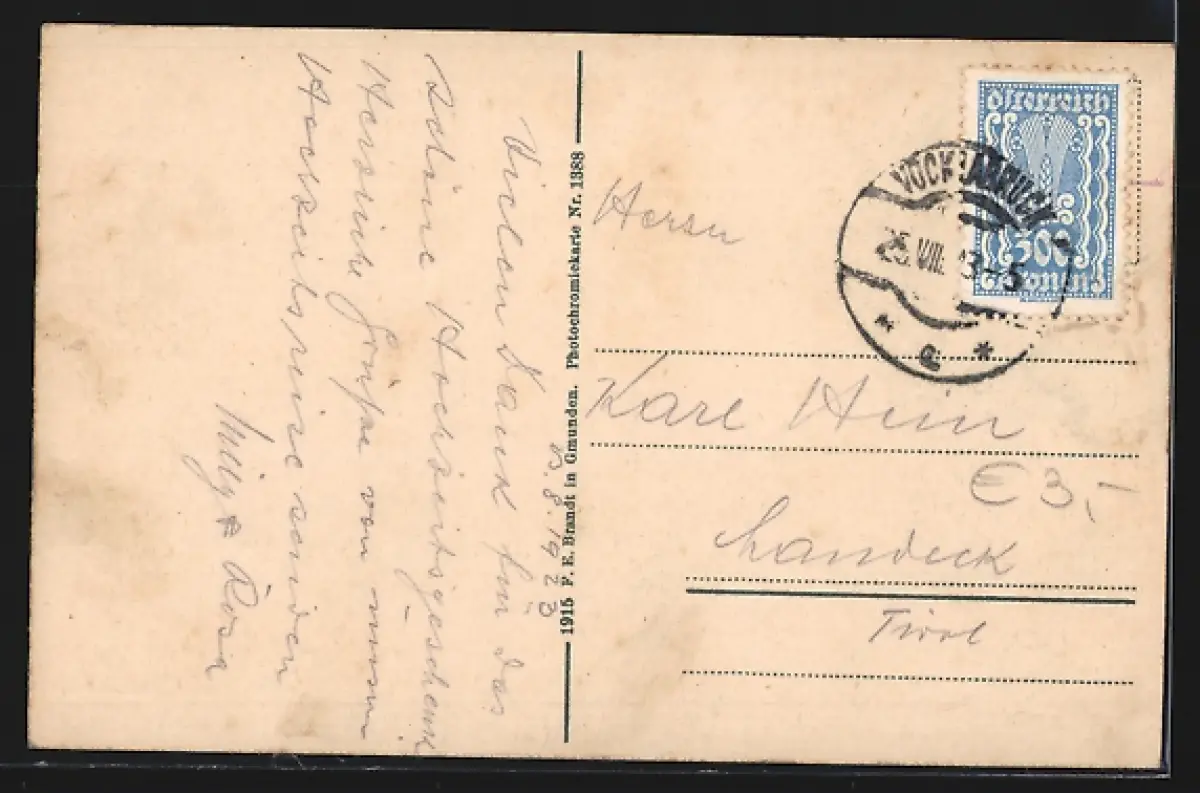 Vielen Dank für das
schöne Hochzeitsgeschenk
Herzliche Grüsse von unserer
Hochzeitsreise senden
Milly & Rosa
B. 8. 1923
1915 F. E. Brandt in Gmunden. Photochromiekarte Nr. 1388
Österreich
500
Kronen
VÖCKLABRUCK
25. VIII. 23-5
* a *
Herrn
Karl Hein
€ 3,-
Landeck
Tirol